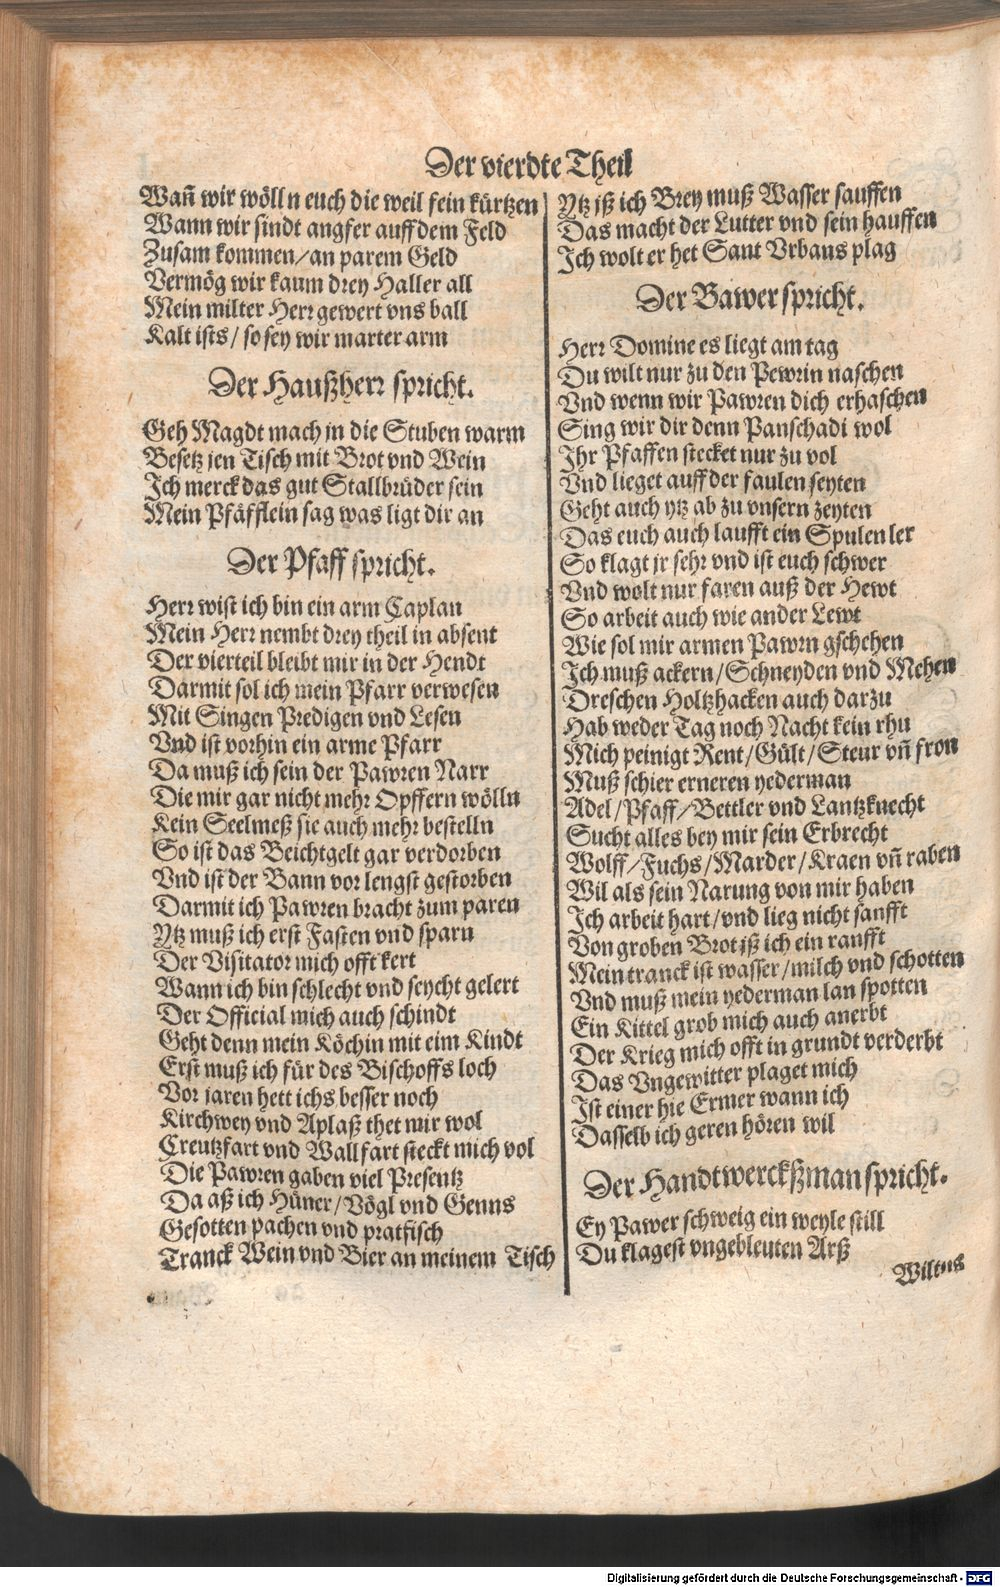 Der vierdte Theil
Wañ wir wölln euch die weil fein kürtzen
Wann wir sindt angfer auff dem Feld
Zusam kommen/an parem Geld
Vermög wir kaum drey Haller all
Mein milter Herr gewert vns ball
Kalt ists/ so sey wir marter arm
Der Haußherr spricht.
Geh Magdt mach in die Stuben warm
Besetz jen Tisch mit Brot vnd Wein
Ich merck das gut Stallbrüder sein
Mein Pfäfflein sag was ligt dir an
Der Pfaff spricht.
Herr wist ich bin ein arm Caplan
Mein Herr nembt drey theil in absent
Der vierteil bleibt mir in der Hendt
Darmit sol ich mein Pfarr verwesen
Mit Singen Predigen vnd Lesen
Vnd ist vorhin ein arme Pfarr
Da muß ich sein der Pawren Narr
Die mir gar nicht mehr Opffern wölln
Kein Seelmeß sie auch mehr bestelln
So ist das Beichtgelt gar verdorben
Vnd ist der Bann vor lengst gestorben
Darmit ich Pawren bracht zum paren
Ytz muß ich erst Fasten vnd sparn
Der Visitator mich offt kert
Wann ich bin schlecht vnd seycht gelert
Der Official mich auch schindt
Geht denn mein Köchin mit eim Kindt
Erst muß ich für des Bischoffs loch
Vor jaren hett ichs besser noch
Kirchwey vnd Aplaß thet mir wol
Creutzfart vnd Wallfart steckt mich vol
Die Pawren gaben viel Presentz
Da aß ich Hüner/Vögl vnd Genns
Gesotten pachen vnd pratfisch
Tranck Wein vnd Bier an meinem Tisch
Ytz iß ich Brey muß Wasser sauffen
Das macht der Lutter vnd sein hauffen
Ich wolt er het Sant Vrbans plag
Der Bawer spricht.
Herr Domine es liegt am tag
Du wilt nur zu den Pewrin naschen
Vnd wenn wir Pawren dich erhaschen
Sing wir dir denn Panschadi wol
Ihr Pfaffen stecket nur zu vol
Vnd lieget auff der faulen seyten
Geht auch ytz ab zu vnsern zeyten
Das euch auch laufft ein Spulen ler
So klagt jr sehr vnd ist euch schwer
Vnd wolt nur faren auß der Hewt
So arbeit auch wie ander Lewt
Wie sol mir armen Pawrn gschehen
Ich muß ackern/Schneyden vnd Mehen
Dreschen Holtzhacken auch darzu
Hab weder Tag noch Nacht kein rhu
Mich peinigt Rent/Gült/Steur vñ fron
Muß schier erneren yederman
Adel/Pfaff/Bettler vnd Lantzknecht
Sucht alles bey mir sein Erbrecht
Wolff/Fuchs/Marder/Kraen vñ raben
Wil als sein Narung von mir haben
Ich arbeit hart/vnd lieg nicht sanfft
Von groben Brot iß ich ein ranfft
Mein tranck ist wasser/milch vnd schotten
Vnd muß mein yederman lan spotten
Ein Kittel grob mich auch anerbt
Der Krieg mich offt in grundt verderbt
Das Vngewitter plaget mich
Ist einer hie Ermer wann ich
Dasselb ich geren hören wil
Der Handtwerckßman spricht.
Ey Pawer schweig ein weyle still
Du klagest vngebleuten Arß
Wiltus
Digitalisierung gefördert durch die Deutsche Forschungsgemeinschaft - DFG